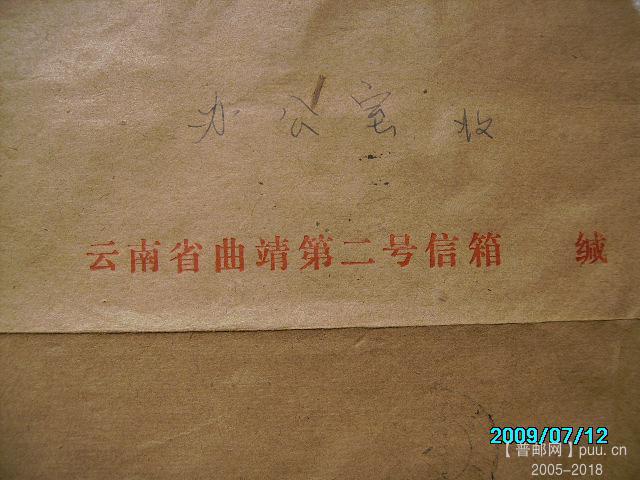 办公室 收
云南省曲靖第二号信箱 缄
2009/07/12
【普邮网】puu.cn
2005-2018